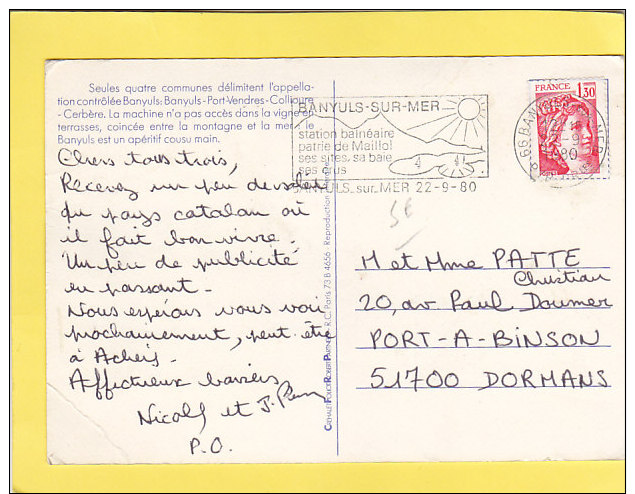 Seules quatre communes délimitent l'appella-
tion contrôlée Banyuls: Banyuls-Port-Vendres-Collioure
-Cerbère. La machine n'a pas accès dans la vigne en
terrasses, coincée entre la montagne et la mer: le
Banyuls est un apéritif cousu main.
BANYULS-SUR-MER
station balnéaire
patrie de Maillol
ses sites, sa baie
ses crus
BANYULS sur MER 22-9-80
FRANCE 1,30
Chers tous trois,
Recevez un peu de soleil
du pays catalan où
il fait bon vivre.
Un peu de publicité
en passant.
Nous espérons vous voir
prochainement, peut-être
à Achery.
Affectueux baisers
Nicole et J. Pierre
P.O.
R.C. Paris 73 B 4656 - Reproduction
5€
M et Mme PATTE
Christian
20, av Paul Doumer
PORT-A-BINSON
51700 DORMANS